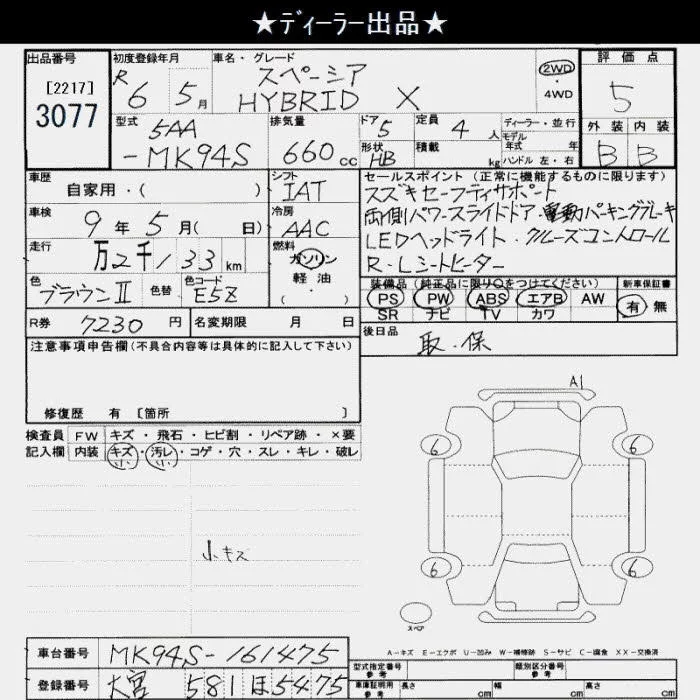 ★ディーラー出品★
出品番号
[2217]
3077
初度登録年月
R 6 5月
車名・グレード
スペーシア
HYBRID X
2WD
・
4WD
評価点
5
外装 内装
B B
型式
5AA
-MK94S
排気量
660cc
ドア 5
形状 HB
定員 4人
積載 kg
ディーラー・並行
モデル年式 年
ハンドル 左・右
車歴
自家用・( )
シフト
IAT
車検
9年5月( 日)
冷房
AAC
走行
万2千133km
燃料
ガソリン
・
軽油
( )
色
ブラウンII
色替
色コード
E5Z
セールスポイント(正常に機能するものに限ります)
スズキセーフティサポート
両側パワースライドドア・電動パーキングブレーキ
LEDヘッドライト・クルーズコントロール
R・Lシートヒーター
装備品(純正品に限り○をつけてください)
PS PW ABS エアB AW
SR ナビ TV カワ
新車保証書
有 無
R券 7230円
名変期限 月 日
後日品
取・保
注意事項申告欄(不具合内容等は具体的に記入して下さい)
修復歴 有 [箇所 ]
検査員 FW キズ・飛石・ヒビ割・リペア跡・×要
記入欄 内装 キズ・汚レ・コゲ・穴・スレ・キレ・破レ
小 小
小キズ
A1
6 6
6 6
スペア
A-キズ E-エクボ U-凹み W-補修跡 S-サビ C-腐食 XX-交換済
車台番号 MK94S-161475
登録番号 大宮 581 ほ5475
型式指定番号
参考
類別区分番号
参考
車庫証明用
参考
長さ cm 幅 cm 高さ cm